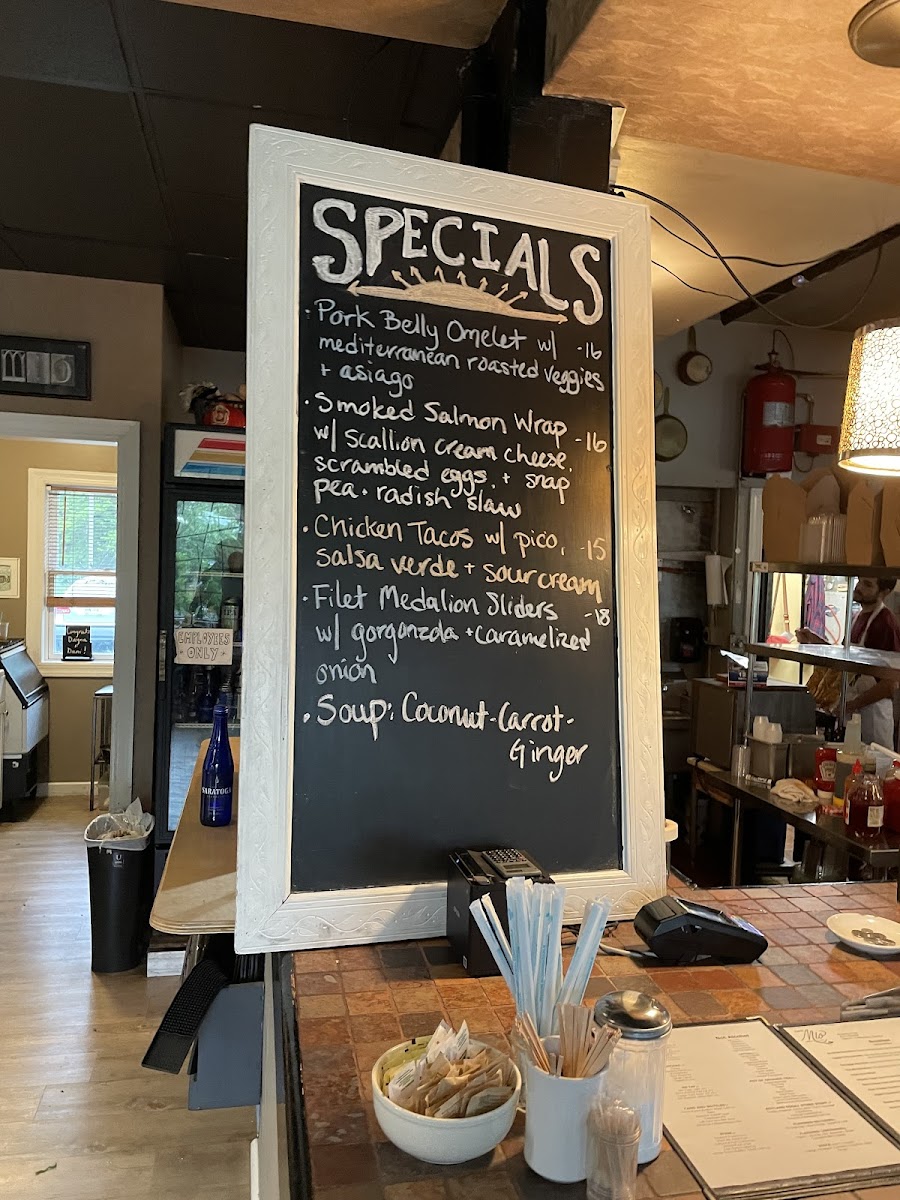 SPECIALS
· Pork Belly Omelet w/ -16
mediterranean roasted veggies
+ asiago
· Smoked Salmon Wrap -16
w/ scallion cream cheese,
scrambled eggs, + snap
pea · radish slaw
· Chicken Tacos w/ pico, -15
salsa verde + sour cream
· Filet Medalion Sliders -18
w/ gorgonzola + caramelized
onion
· Soup: Coconut-Carrot-
Ginger
EMPLOYEES
ONLY
SARATOGA
Mio